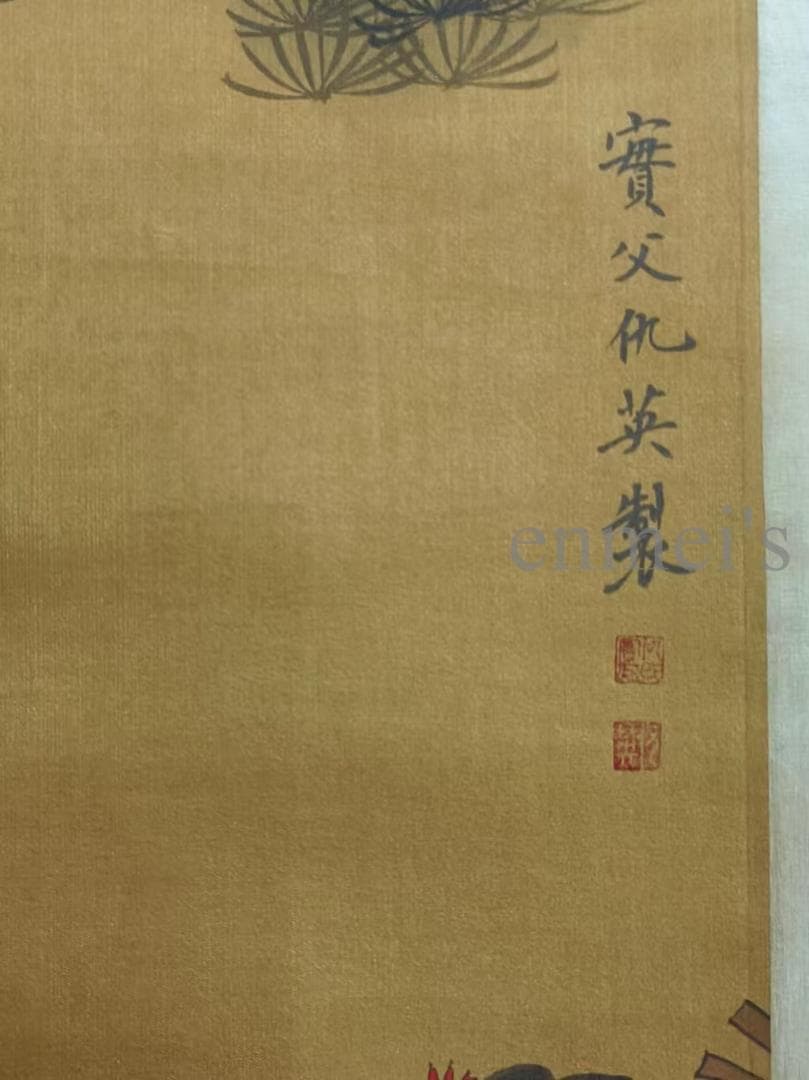 實父仇英製
enmei's